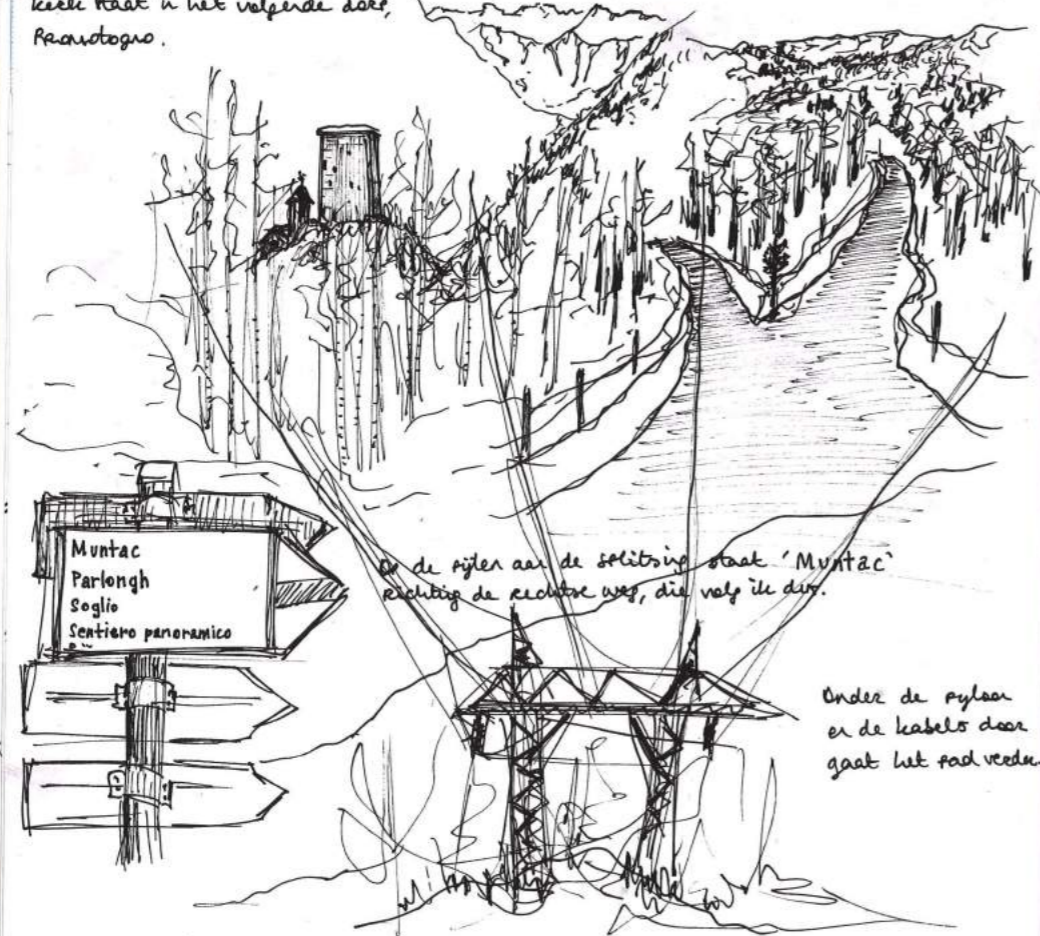 kerk staat in het volgende dorp,
Promotogno.
Muntac
Parlongh
Soglio
Sentiero panoramico
Op de pijlen aan de splitsing staat 'Muntac'
richting de rechtse weg, die volg ik dus.
Onder de pyloon
en de kabels door
gaat het pad verder.